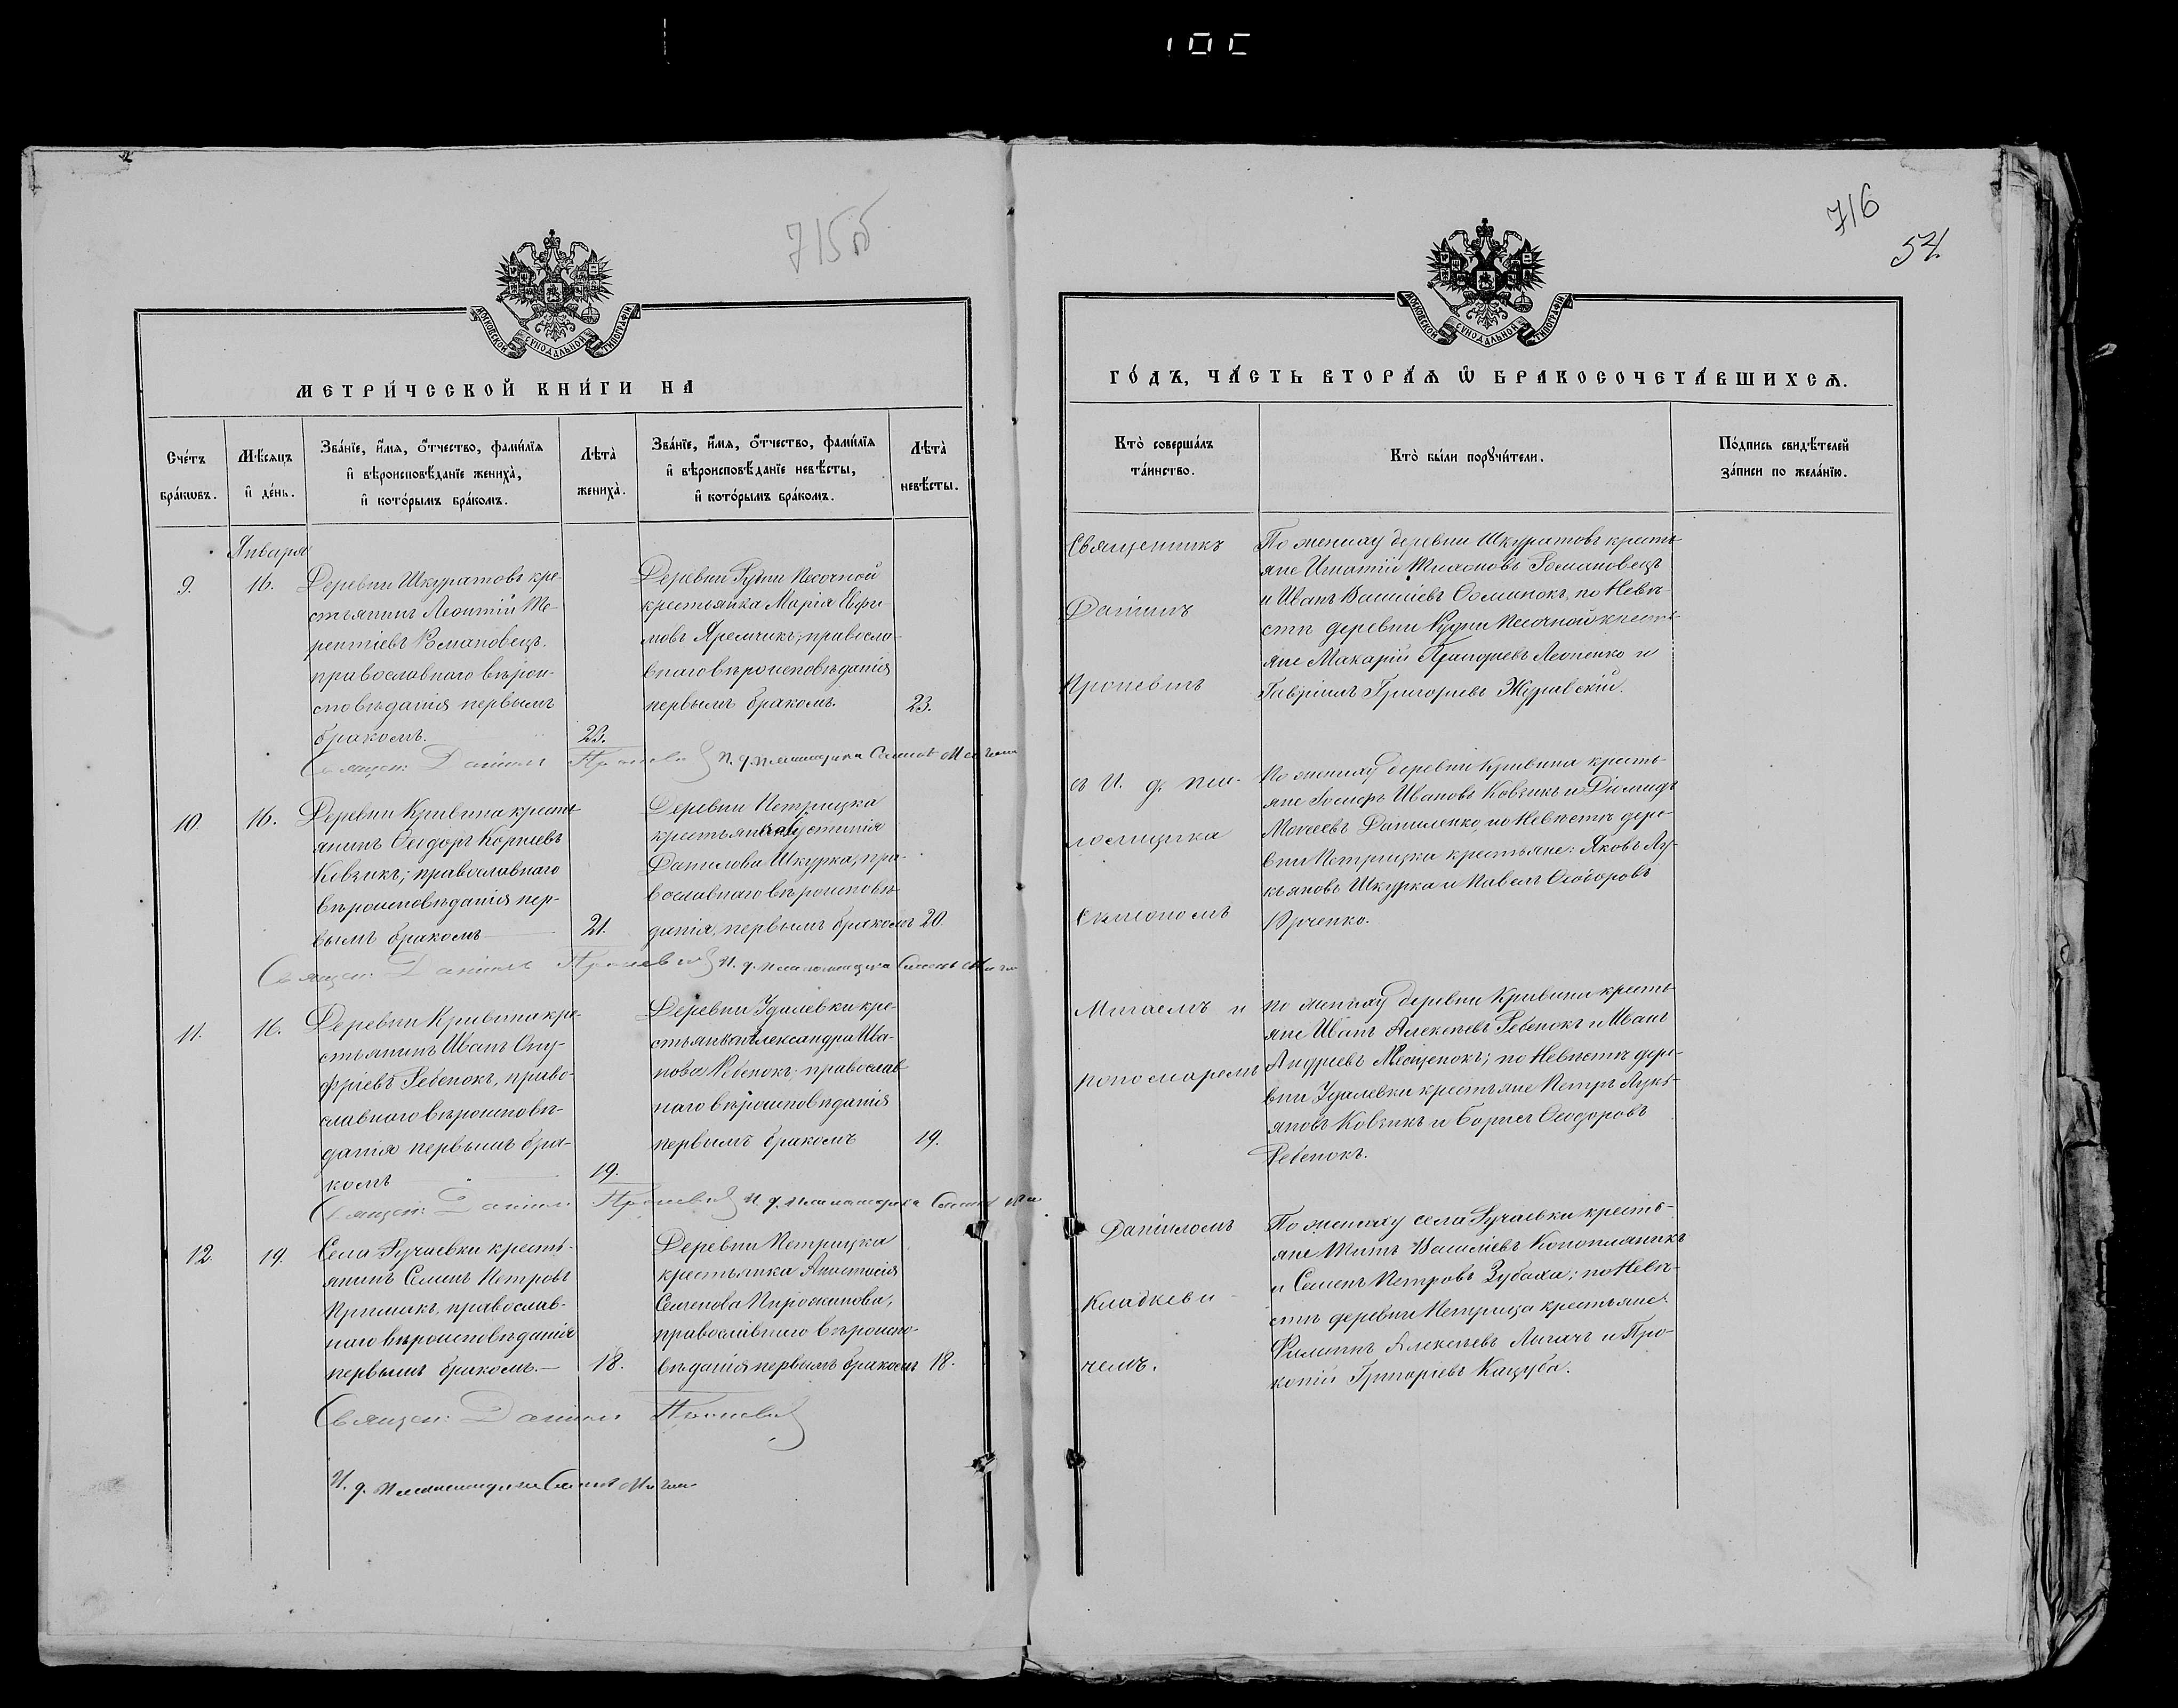 715б
МОСКОВСКОЙ СУНОДАЛЬНОЙ ТИПОГРАФІИ
МЕТРИ́ЧЕСКОЙ КНИ́ГИ НА
Сче́тъ бра́кωвъ.
Мѣ́сяцъ и҆ де́нь.
Зва́нїе, и҆́мѧ, ѻ҆́тчество, фами́лїѧ
и҆ вѣроисповѣ́данїе жениха̀,
и҆ кото́рымъ бра́комъ.
Лѣта̀ жениха̀.
Зва́нїе, и҆́мѧ, ѻ҆́тчество, фами́лїѧ
и҆ вѣроисповѣ́данїе невѣ́сты,
и҆ кото́рымъ бра́комъ.
Лѣта̀ невѣ́сты.
Января
9.
16.
Деревни Шкуратовъ кре-
стьянинъ Леонтій Те-
рентіевъ Романовецъ.
православнаго вѣрои-
сповѣданія первымъ
бракомъ.
23.
Деревни Рудни Песочной
крестьянка Марія Евфи
мовъ Яремчикъ, правосла-
внаго вѣроисповѣданія
первымъ бракомъ.
23.
Священ: Даніилъ
10.
16.
Деревни Кривина кресть
янинъ Ѳеодоръ Корніевъ
Ковзикъ; православнаго
вѣроисповѣданія пер-
вымъ бракомъ
21.
Деревни Петрицка
крестьянка Іустинія
Данилова Шкурка, пра-
вославнаго вѣроисповѣ
данія, первымъ бракомъ
20.
Священ: Даніилъ
11.
16.
Деревни Кривина кре-
стьянинъ Иванъ Ону-
фріевъ Ребенокъ, право-
славнаго вѣроисповѣ-
данія первымъ бра-
комъ
19.
Деревни Удалевки кре-
стьянка Александра Ива-
нова Ребенокъ, православ
наго вѣроисповѣданія
первымъ бракомъ
19.
Священ: Даніилъ
12.
19.
Села Ручаевки кресть-
янинъ Петровъ
Примакъ, православ-
наго вѣроисповѣданія
первымъ бракомъ.—
18.
Деревни Петрицка
крестьянка Анастасія
Семенова Пирожкова,
православнаго вѣроиспо-
вѣданія первымъ бракомъ
18.
Священ: Даніилъ
716
54.
МОСКОВСКОЙ СУНОДАЛЬНОЙ ТИПОГРАФІИ
ГО́ДЪ, ЧА́СТЬ ВТОРА́Ѧ Ѡ҆ БРАКОСОЧЕТА́ВШИХСѦ.
Кто̀ соверша́лъ
та́инство.
Кто̀ бы́ли порꙋчи́тели.
По́дпись свидѣ́телей
за́писи по жела́нїю.
Священникъ
Даніилъ
съ И. д. пса-
ломщика
Мигаемъ и
пономаремъ
Даніиломъ
Кладкеви-
чемъ.
По жениху деревни Шкуратовъ кресть
яне Игнатій Романовецъ
и Иванъ Василіевъ по Невѣ-
стѣ деревни Рудни Песочной кресть-
яне Макарій Леоненко и
Гавріилъ Григорьевъ Журавскій.
По жениху деревни Кривина кресть-
яне Ивановъ Ковзикъ и Діомидъ
Моѵсеевъ Даниленко, по Невѣстѣ дере-
вни Петрицка крестьяне: Яковъ Лу-
кьяновъ Шкурка и Павелъ Ѳеодоровъ
Юрченко.
По жениху деревни Кривина кресть-
яне Иванъ Алексѣевъ Ребенокъ и Иванъ
Андреевъ по Невѣстѣ дере-
вни Удалевки крестьяне Петръ Лукь-
яновъ Ковзикъ и Борисъ Ѳеодоровъ
Ребенокъ.
По жениху села Ручаевки кресть-
яне Титъ Василіевъ Конопляникъ
и Семенъ Петровъ Зубаха; по Невѣ-
стѣ деревни Петрицка крестьяне:
Филиппъ Алексѣевъ Лигачъ и Про-
копій Григоріевъ Кацуба.